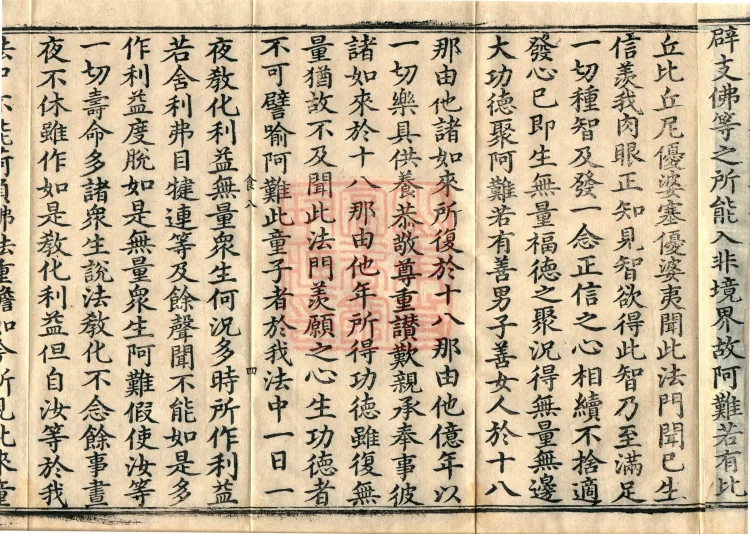 辟支佛等之所能入非境界故阿難若有比
丘比丘尼優婆塞優婆夷聞此法門聞已生
信羨我肉眼正知見智欲得此智乃至滿足
一切種智及發一念正信之心相續不捨適
發心已即生無量福德之聚況得無量無邊
大功德聚阿難若有善男子善女人於十八
那由他諸如來所復於十八那由他億年以
一切樂具供養恭敬尊重讃歎親承奉事彼
諸如來於十八那由他年所得功德雖復無
量猶故不及聞此法門羨願之心生功德者
不可譬喻阿難此童子者於我法中一日一
食八
四
夜教化利益無量衆生何況多時所作利益
若舍利弗目犍連等及餘聲聞不能如是多
作利益度脫如是無量衆生阿難假使汝等
一切壽命多諸衆生說法教化不念餘事晝
夜不休雖作如是教化利益但自汝等於我
法中不能荷負佛法重擔如今所見此來童